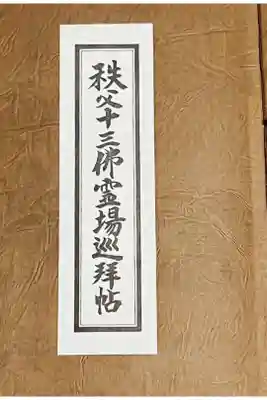 秩父十三佛霊場巡拝帖